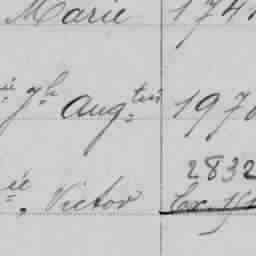 Marie 174
ié Jh Augtin 197
2832
ié, Victor